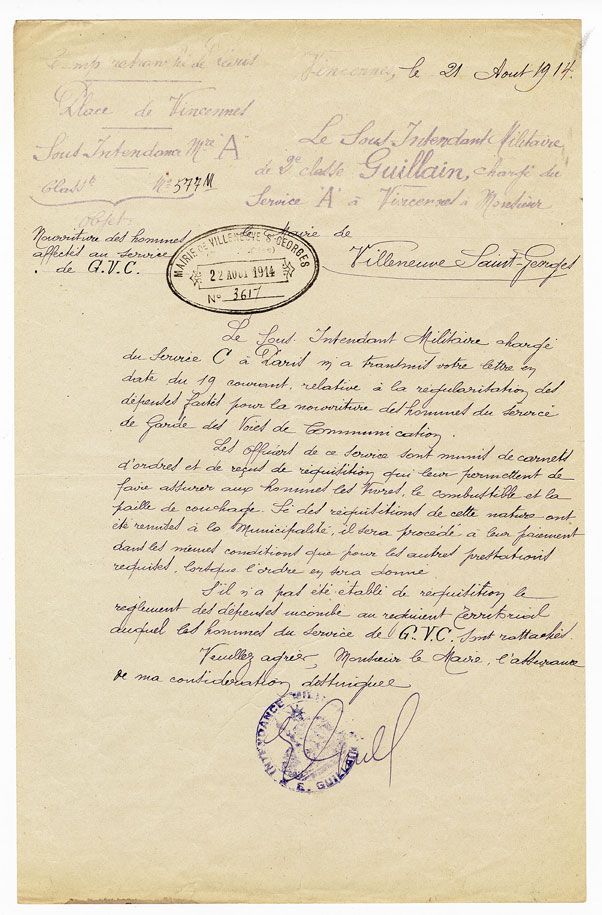 Camp retranché de Paris
Vincennes, le 21 Août 1914.
Place de Vincennes
Sous Intendance Mre "A"
Classt No 577 M
Le Sous Intendant Militaire
de 2e classe Guillain, chargé du
Service "A" à Vincennes à Monsieur
le Maire de
Villeneuve Saint-Georges
Objet
Nourriture des hommes
affectés au service
de G.V.C.
MAIRIE DE VILLENEUVE St GEORGES
22 AOUT 1914
No 3617
Le Sous Intendant Militaire chargé
du Service C à Paris m'a transmis votre lettre en
date du 19 courant, relative à la régularisation des
dépenses faites pour la nourriture des hommes du service
de Garde des Voies de Communication.
Les officiers de ce service sont munis de carnets
d'ordres et de reçus de réquisition qui leur permettent de
faire assurer aux hommes les vivres, le combustible et la
paille de couchage. Si des réquisitions de cette nature ont
été remises à la Municipalité, il sera procédé à leur paiement
dans les mêmes conditions que pour les autres prestations
requises, lorsque l'ordre en sera donné
S'il n'a pas été établi de réquisition le
règlement des dépenses incombe au régiment Territorial
auquel les hommes du service de G.V.C. sont rattachés
Veuillez agréer, Monsieur le Maire, l'assurance
de ma considération distinguée
INTENDANCE MILI
E. GUILLAIN